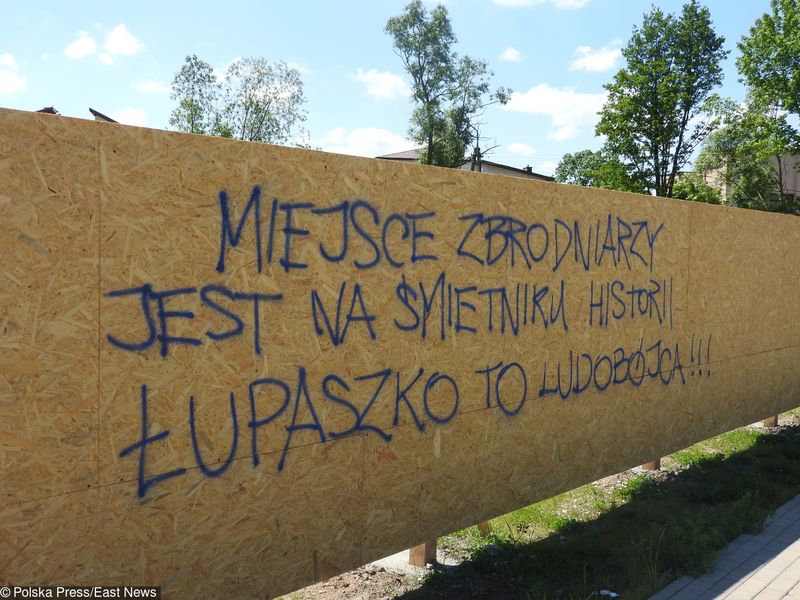 MIEJSCE ZBRODNIARZY
JEST NA ŚMIETNIKU HISTORII
ŁUPASZKO TO LUDOBÓJCA!!!
© Polska Press/East News